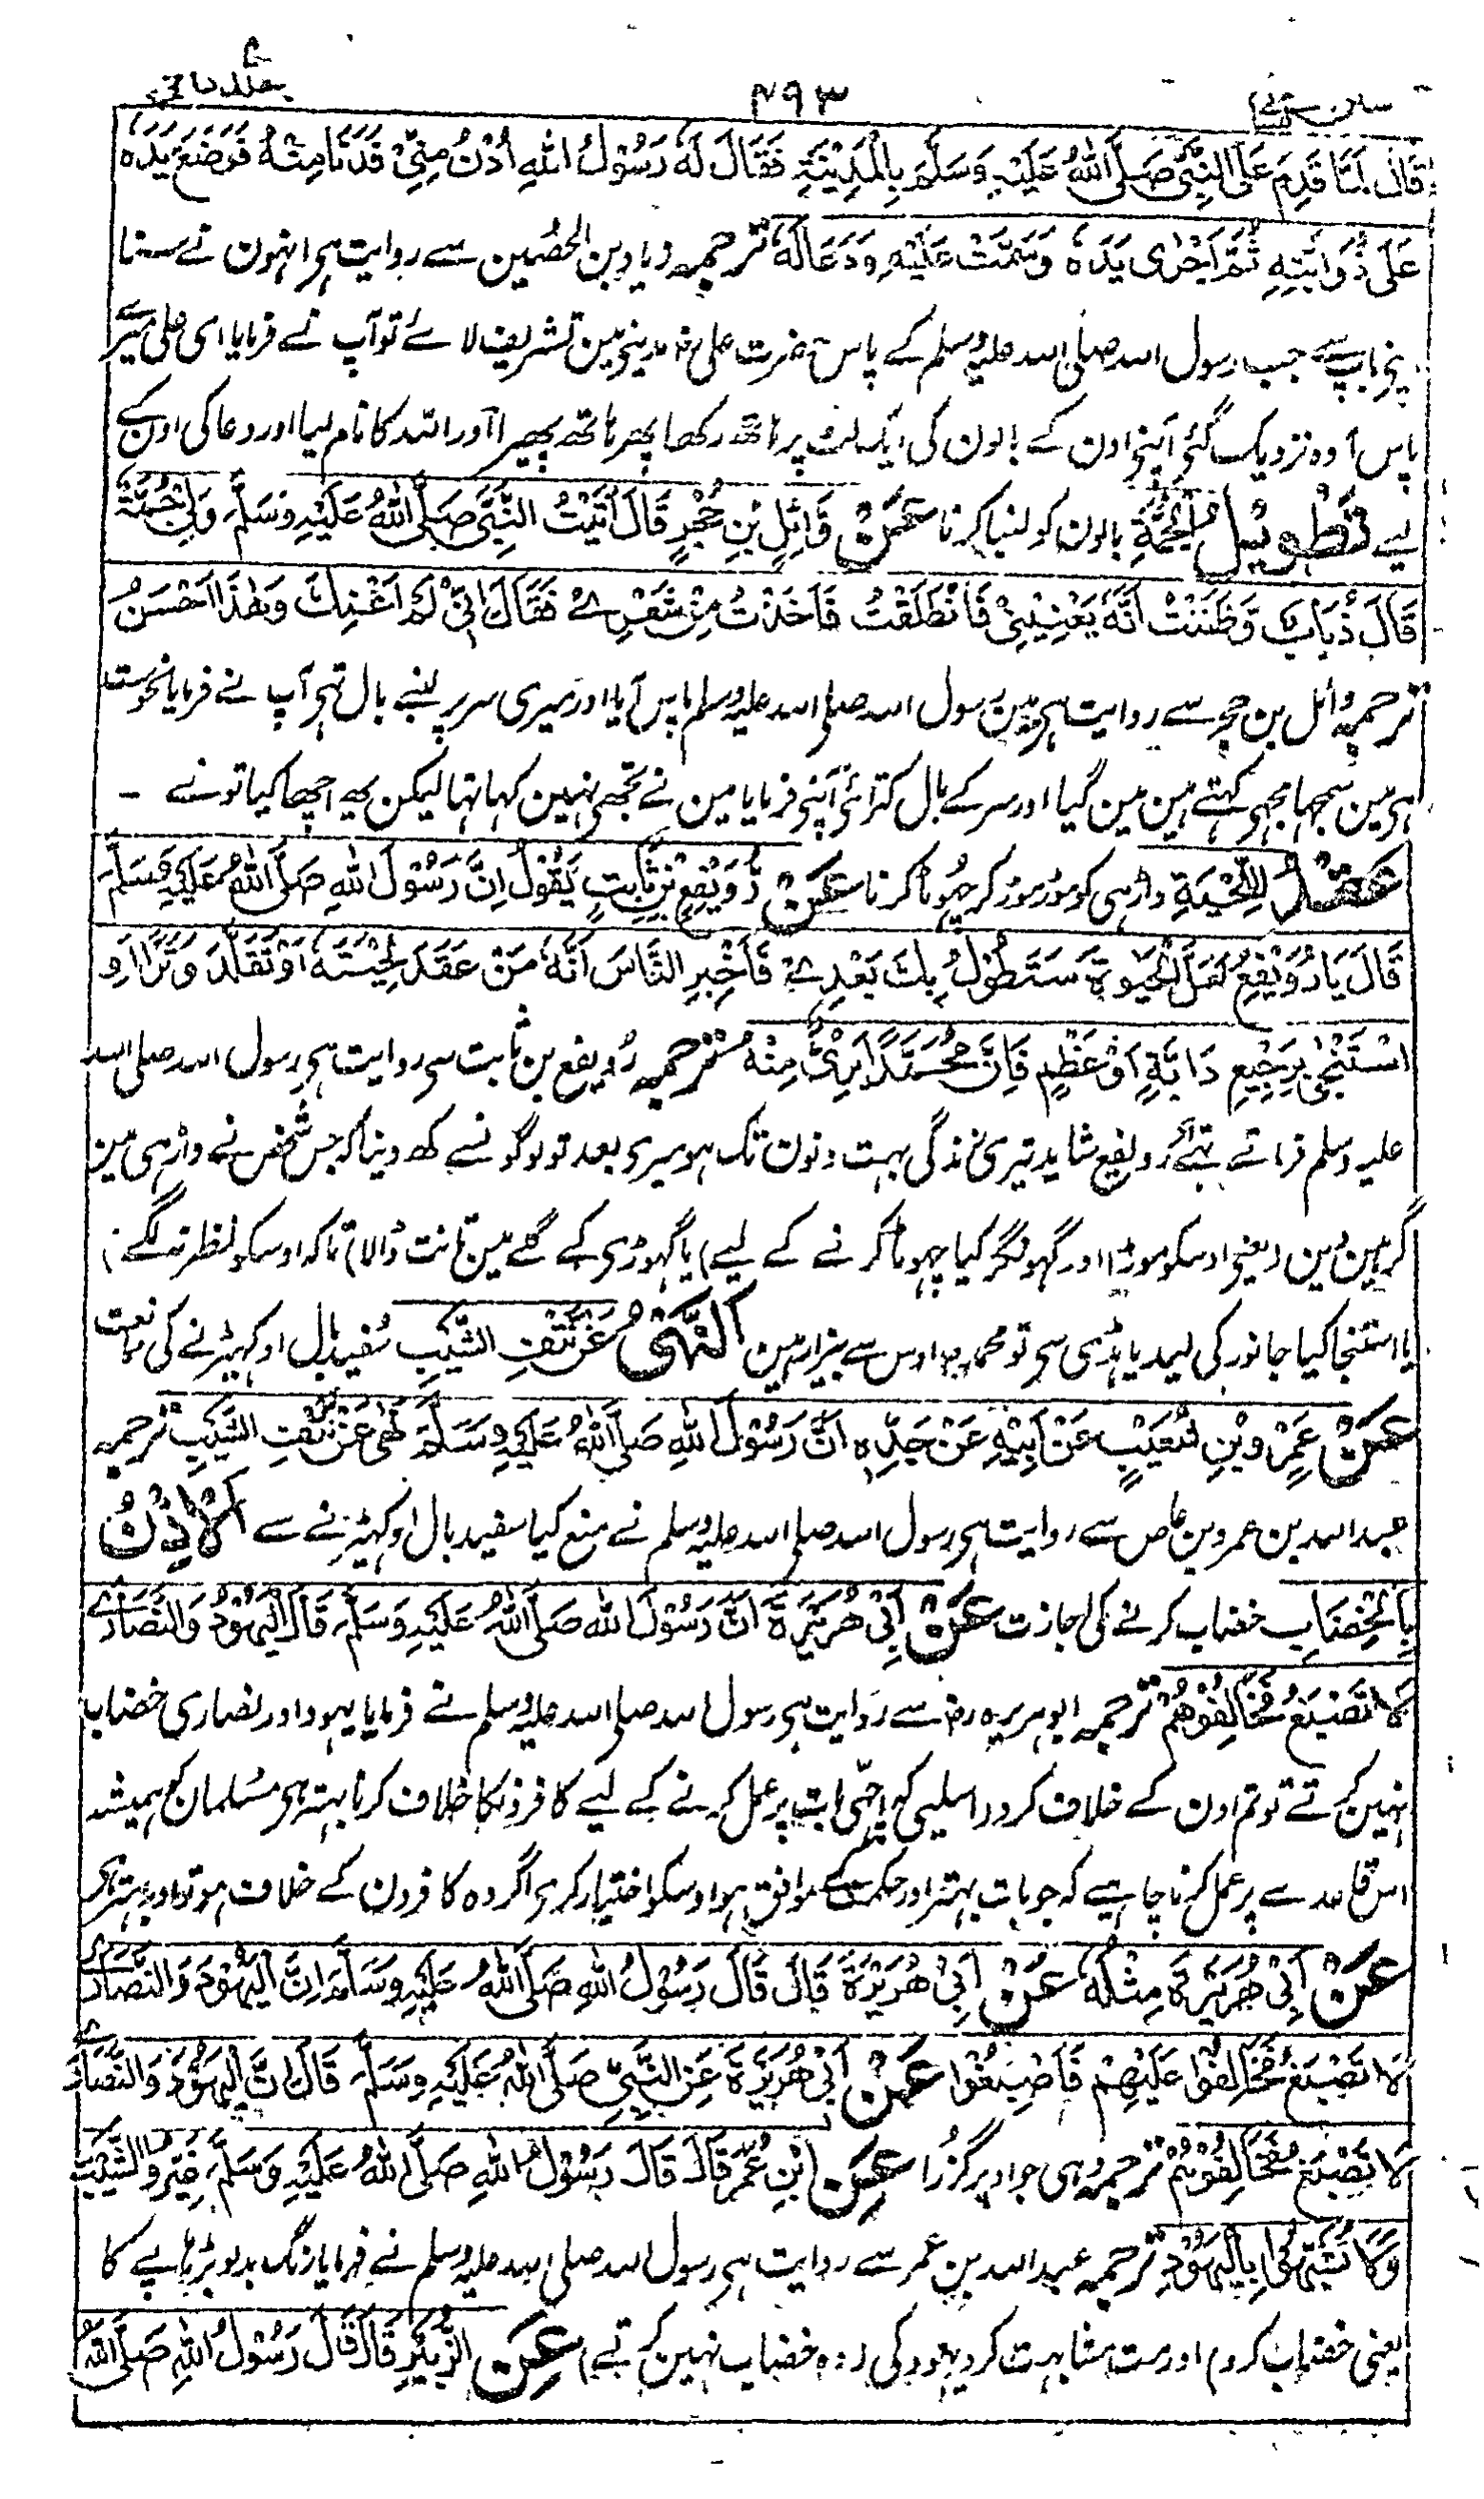 ۴۹۳
قَالَ لَمَّا قَدِمَ عَلَى النَّبِيِّ صَلَّى اللهُ عَلَيْهِ وَسَلَّمَ بِالْمَدِيْنَةِ فَقَالَ لَهٗ رَسُوْلُ اللهِ اُدْنُ مِنِّيْ فَدَنَا مِنْهُ فَوَضَعَ يَدَهٗ
عَلٰى ذُوَابَتِهٖ ثُمَّ اَجْرٰى يَدَهٗ وَسَمَّتَ عَلَيْهِ وَدَعَا لَهٗ ترجمہ زیاد بن الحصین سے روایت ہی انہون نے سنا
جب رسول اللہ صلی اللہ علیہ وسلم کے پاس حضرت علی مدینی مین تشریف لائے تو آپ نے فرمایا ای علی میرے
پاس آ وہ نزدیک گئی آپنی اون کے بالون کی ایک لٹ پر ہاتھ رکھا پھر ہاتھ پھیرا اور اللہ کا نام لیا اور دعا کی اون کے
لیے تَطْوِيْلُ الْجُمَّةِ بالون کو لنبا کرنا عَنْ وَائِلِ بْنِ حُجْرٍ قَالَ اَتَيْتُ النَّبِيَّ صَلَّى اللهُ عَلَيْهِ وَسَلَّمَ وَلِيْ جُمَّةٌ
قَالَ ذُبَابٌ وَظَنَنْتُ اَنَّهٗ يَعْنِيْنِيْ فَانْطَلَقْتُ فَاَخَذْتُ مِنْ شَعْرِيْ فَقَالَ اِنِّيْ لَمْ اَعْنِكَ وَهٰذَا اَحْسَنُ
ترجمہ وائل بن حجر سے روایت ہی مین رسول اللہ صلی اللہ علیہ وسلم پاس آیا اور میری سر پر لنبے بال تہی آپ نے فرمایا نحوست
ہی مین سمجہا مجہی کہتے ہین مین گیا اور سر کے بال کترائی آپنی فرمایا مین نے تجھی نہین کہا تہا لیکن یہ اچھا کیا تو نے ـ
عَقْدُ اللِّحْيَةِ داڑہی کو موڑ موڑ کر چہوٹا کرنا عَنْ رُوَيْفِعِ بْنِ ثَابِتٍ يَقُوْلُ اِنَّ رَسُوْلَ اللهِ صَلَّى اللهُ عَلَيْهِ وَسَلَّمَ
قَالَ يَا رُوَيْفِعُ لَعَلَّ الْحَيٰوةَ سَتَطُوْلُ بِكَ بَعْدِيْ فَاَخْبِرِ النَّاسَ اَنَّهٗ مَنْ عَقَدَ لِحْيَتَهٗ اَوْ تَقَلَّدَ وَتَرًا اَوِ
اسْتَنْجٰى بِرَجِيْعِ دَابَّةٍ اَوْ عَظْمٍ فَاِنَّ مُحَمَّدًا بَرِيْءٌ مِنْهُ ترجمہ رویفع بن ثابت سی روایت ہی رسول اللہ صلی اللہ
علیہ وسلم فرماتے تہے اے رویفع شاید تیری زندگی بہت دنون تک ہو میری بعد تو لوگونسے کہ دینا کہ جس شخص نے داڑہی مین
گرہین دین (یعنی اوسکو موڑا اور گہونگر کیا چہوٹا کرنے کے لیے) یا گہوڑی کے گلے مین تانت ڈالا (تاکہ اوسکو نظر نہ لگے)
یا استنجا کیا جانور کی لید یا ہڈی سی تو محمد اوس سے بیزار ہین اَلنَّهْيُ عَنْ نَتْفِ الشَّيْبِ سفید بال اوکہیڑنے کی ممانعت
عَنْ عَمْرِو بْنِ شُعَيْبٍ عَنْ اَبِيْهِ عَنْ جَدِّهٖ اَنَّ رَسُوْلَ اللهِ صَلَّى اللهُ عَلَيْهِ وَسَلَّمَ نَهٰى عَنْ نَتْفِ الشَّيْبِ ترجمہ
عبد اللہ بن عمرو بن عاص سے روایت ہی رسول اللہ صلی اللہ علیہ وسلم نے منع کیا سفید بال اوکہیڑنے سے اَلْاِذْنُ
بِالْخِضَابِ خضاب کرنے کی اجازت عَنْ اَبِيْ هُرَيْرَةَ اَنَّ رَسُوْلَ اللهِ صَلَّى اللهُ عَلَيْهِ وَسَلَّمَ قَالَ الْيَهُوْدُ وَالنَّصَارٰى
لَا تَصْبَغُ فَخَالِفُوْهُمْ ترجمہ ابو ہریرہ رض سے روایت ہی رسول اللہ صلی اللہ علیہ وسلم نے فرمایا یہود اور نصاری خضاب
نہین کرتے تو تم اون کے خلاف کرو (اسلیی کہ اچھی بات پر عمل کرنے کے لیے کافرونکا خلاف کرنا بہتر ہی مسلمان کو ہمیشہ
اس قاعدے پر عمل کرنا چاہیے کہ جو بات بہتر اور حکمت کے موافق ہو اوسکو اختیار کری اگر وہ کافرون کے خلاف ہو تو اور بہتر ہی
عَنْ اَبِيْ هُرَيْرَةَ مِثْلَهٗ عَنْ اَبِيْ هُرَيْرَةَ قَالَ قَالَ رَسُوْلُ اللهِ صَلَّى اللهُ عَلَيْهِ وَسَلَّمَ اِنَّ الْيَهُوْدَ وَالنَّصَارٰى
لَا تَصْبَغُ فَخَالِفُوْا عَلَيْهِمْ فَاصْبِغُوْا عَنْ اَبِيْ هُرَيْرَةَ عَنِ النَّبِيِّ صَلَّى اللهُ عَلَيْهِ وَسَلَّمَ قَالَ اِنَّ الْيَهُوْدَ وَالنَّصَارٰى
لَا تَصْبَغُ فَخَالِفُوْهُمْ ترجمہ وہی جو اوپر گزرا عَنِ ابْنِ عُمَرَ قَالَ قَالَ رَسُوْلُ اللهِ صَلَّى اللهُ عَلَيْهِ وَسَلَّمَ غَيِّرُوا الشَّيْبَ
وَلَا تَشَبَّهُوْا بِالْيَهُوْدِ ترجمہ عبد اللہ بن عمر سے روایت ہی رسول اللہ صلی اللہ علیہ وسلم نے فرمایا رنگ بدلو بڑہاپے کا
(یعنی خضاب کرو) اور مت مشابہت کرو یہود کی (وہ خضاب نہین کرتے) عَنِ الزُّبَيْرِ قَالَ قَالَ رَسُوْلُ اللهِ صَلَّى اللهُ